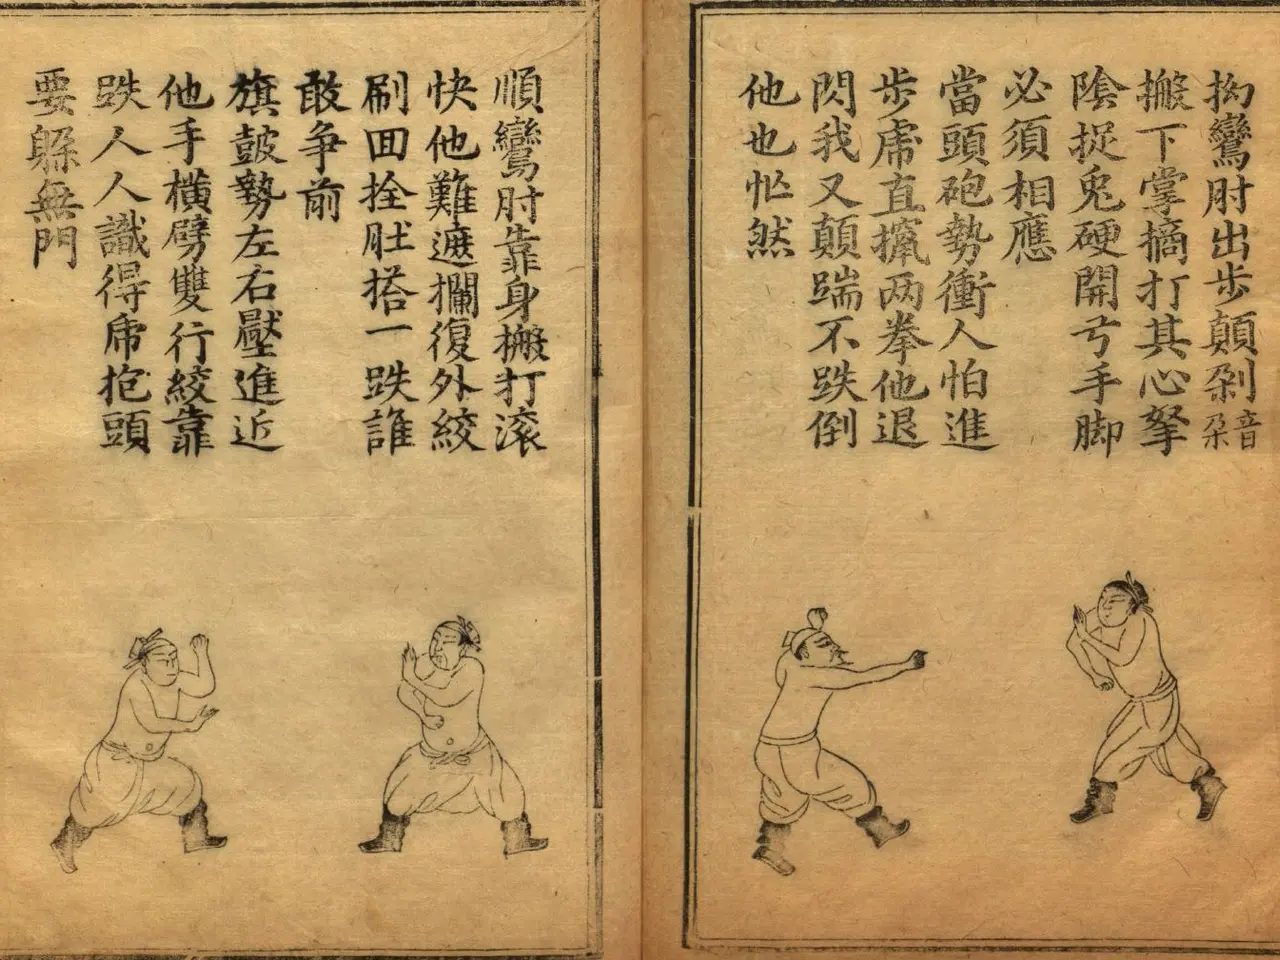 拗鸞肘出步顛剁音朵
搬下掌摘打其心拏
陰捉兎硬開弓手脚
必須相應
當頭砲勢衝人怕進
步虎直攛两拳他退
閃我又顛踹不跌倒
他也忙然
順鸞肘靠身搬打滚
快他難遮攔復外絞
刷囬拴肚搭一跌誰
敢争前
旗鼓勢左右壓進近
他手橫劈雙行絞靠
跌人人識得虎抱頭
要躱無門